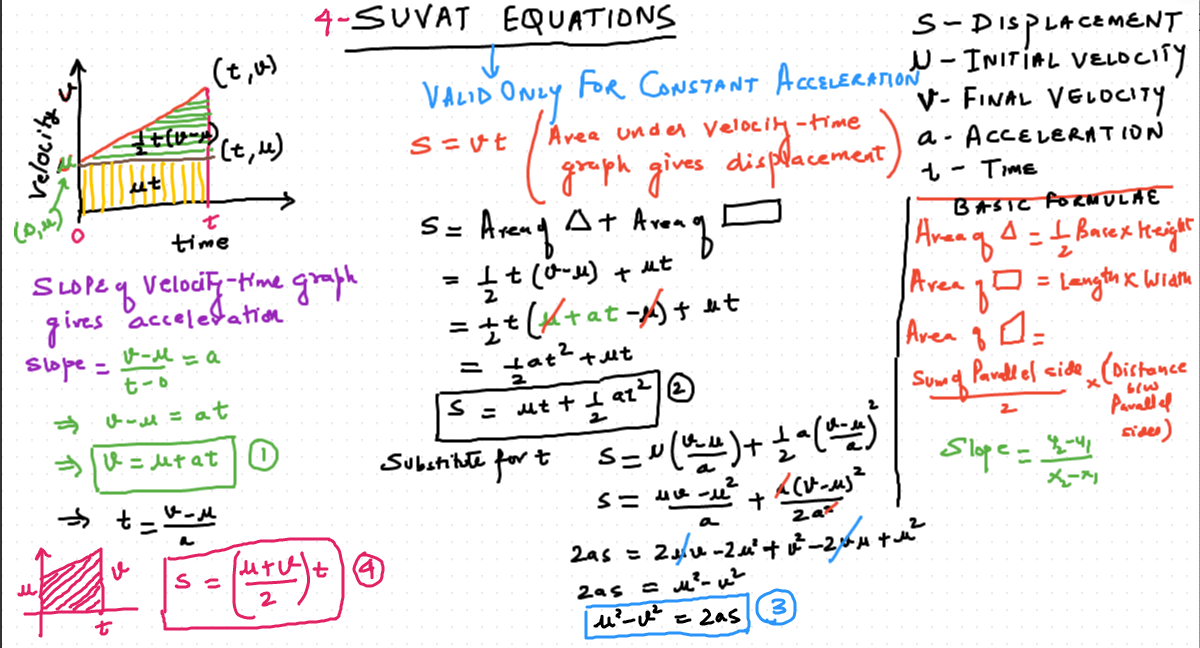 4-SUVAT EQUATIONS
VALID ONLY FOR CONSTANT ACCELERATION
S - DISPLACEMENT
u - INITIAL VELOCITY
v - FINAL VELOCITY
a - ACCELERATION
t - TIME
velocity v
(t, v)
½t(v-u)
(t, u)
u
ut
(0, u)
0
t
time
SLOPE of Velocity-time graph
gives acceleration
Slope = (v-u)/(t-0) = a
⇒ v-u = at
⇒ v = u+at ①
⇒ t = (v-u)/a
u
v
t
s = ((u+v)/2)t ④
S = vt (Area under velocity-time
graph gives displacement)
S = Area of △ + Area of ▭
= ½t(v-u) + ut
= ½t(u+at-u) + ut
= ½at² + ut
S = ut + ½at² ②
Substitute for t
S = u((v-u)/a) + ½a((v-u)/a)²
S = (uv-u²)/a + a(v-u)²/2a²
2as = 2uv - 2u² + v² - 2vu + u²
2as = u²-v²
u²-v² = 2as ③
BASIC FORMULAE
Area of △ = ½ Base x Height
Area of ▭ = Length x Width
Area of ⏢ =
Sum of Parallel side / 2 x (Distance
b/w
Parallel
sides)
Slope = (y₂-y₁)/(x₂-x₁)